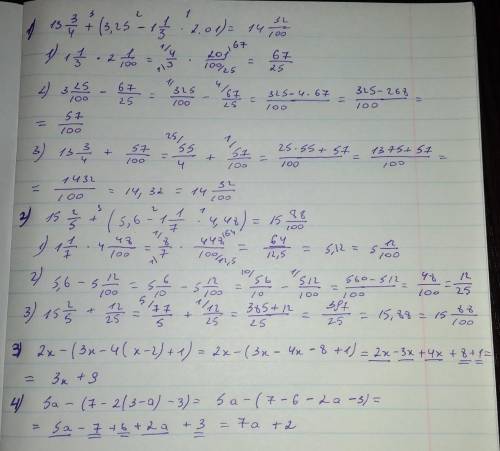 1) 13 3/4 + (3,25 - 1 1/3 · 2,01) = 14 32/100
1) 1 1/3 · 2 1/100 = 4/3 · 201/100 = 67/25
2) 3 25/100 - 67/25 = 325/100 - 67/25 = 325-4·67/100 = 325-268/100 =
= 57/100
3) 13 3/4 + 57/100 = 55/4 + 57/100 = 25·55+57/100 = 1375+57/100 =
= 1432/100 = 14,32 = 14 32/100
2) 15 2/5 + (5,6 - 1 1/7 · 4,48) = 15 88/100
1) 1 1/7 · 4 48/100 = 8/7 · 448/100 = 64/12,5 = 5,12 = 5 12/100
2) 5,6 - 5 12/100 = 5 6/10 - 5 12/100 = 56/10 - 512/100 = 560-512/100 = 48/100 = 12/25
3) 15 2/5 + 12/25 = 77/5 + 12/25 = 385+12/25 = 397/25 = 15,88 = 15 88/100
3) 2x-(3x-4(x-2)+1) = 2x-(3x-4x-8+1) = 2x-3x+4x+8+1 =
= 3x+9
4) 5a-(7-2(3-a)-3) = 5a-(7-6-2a-3) =
= 5a-7+6+2a+3 = 7a+2